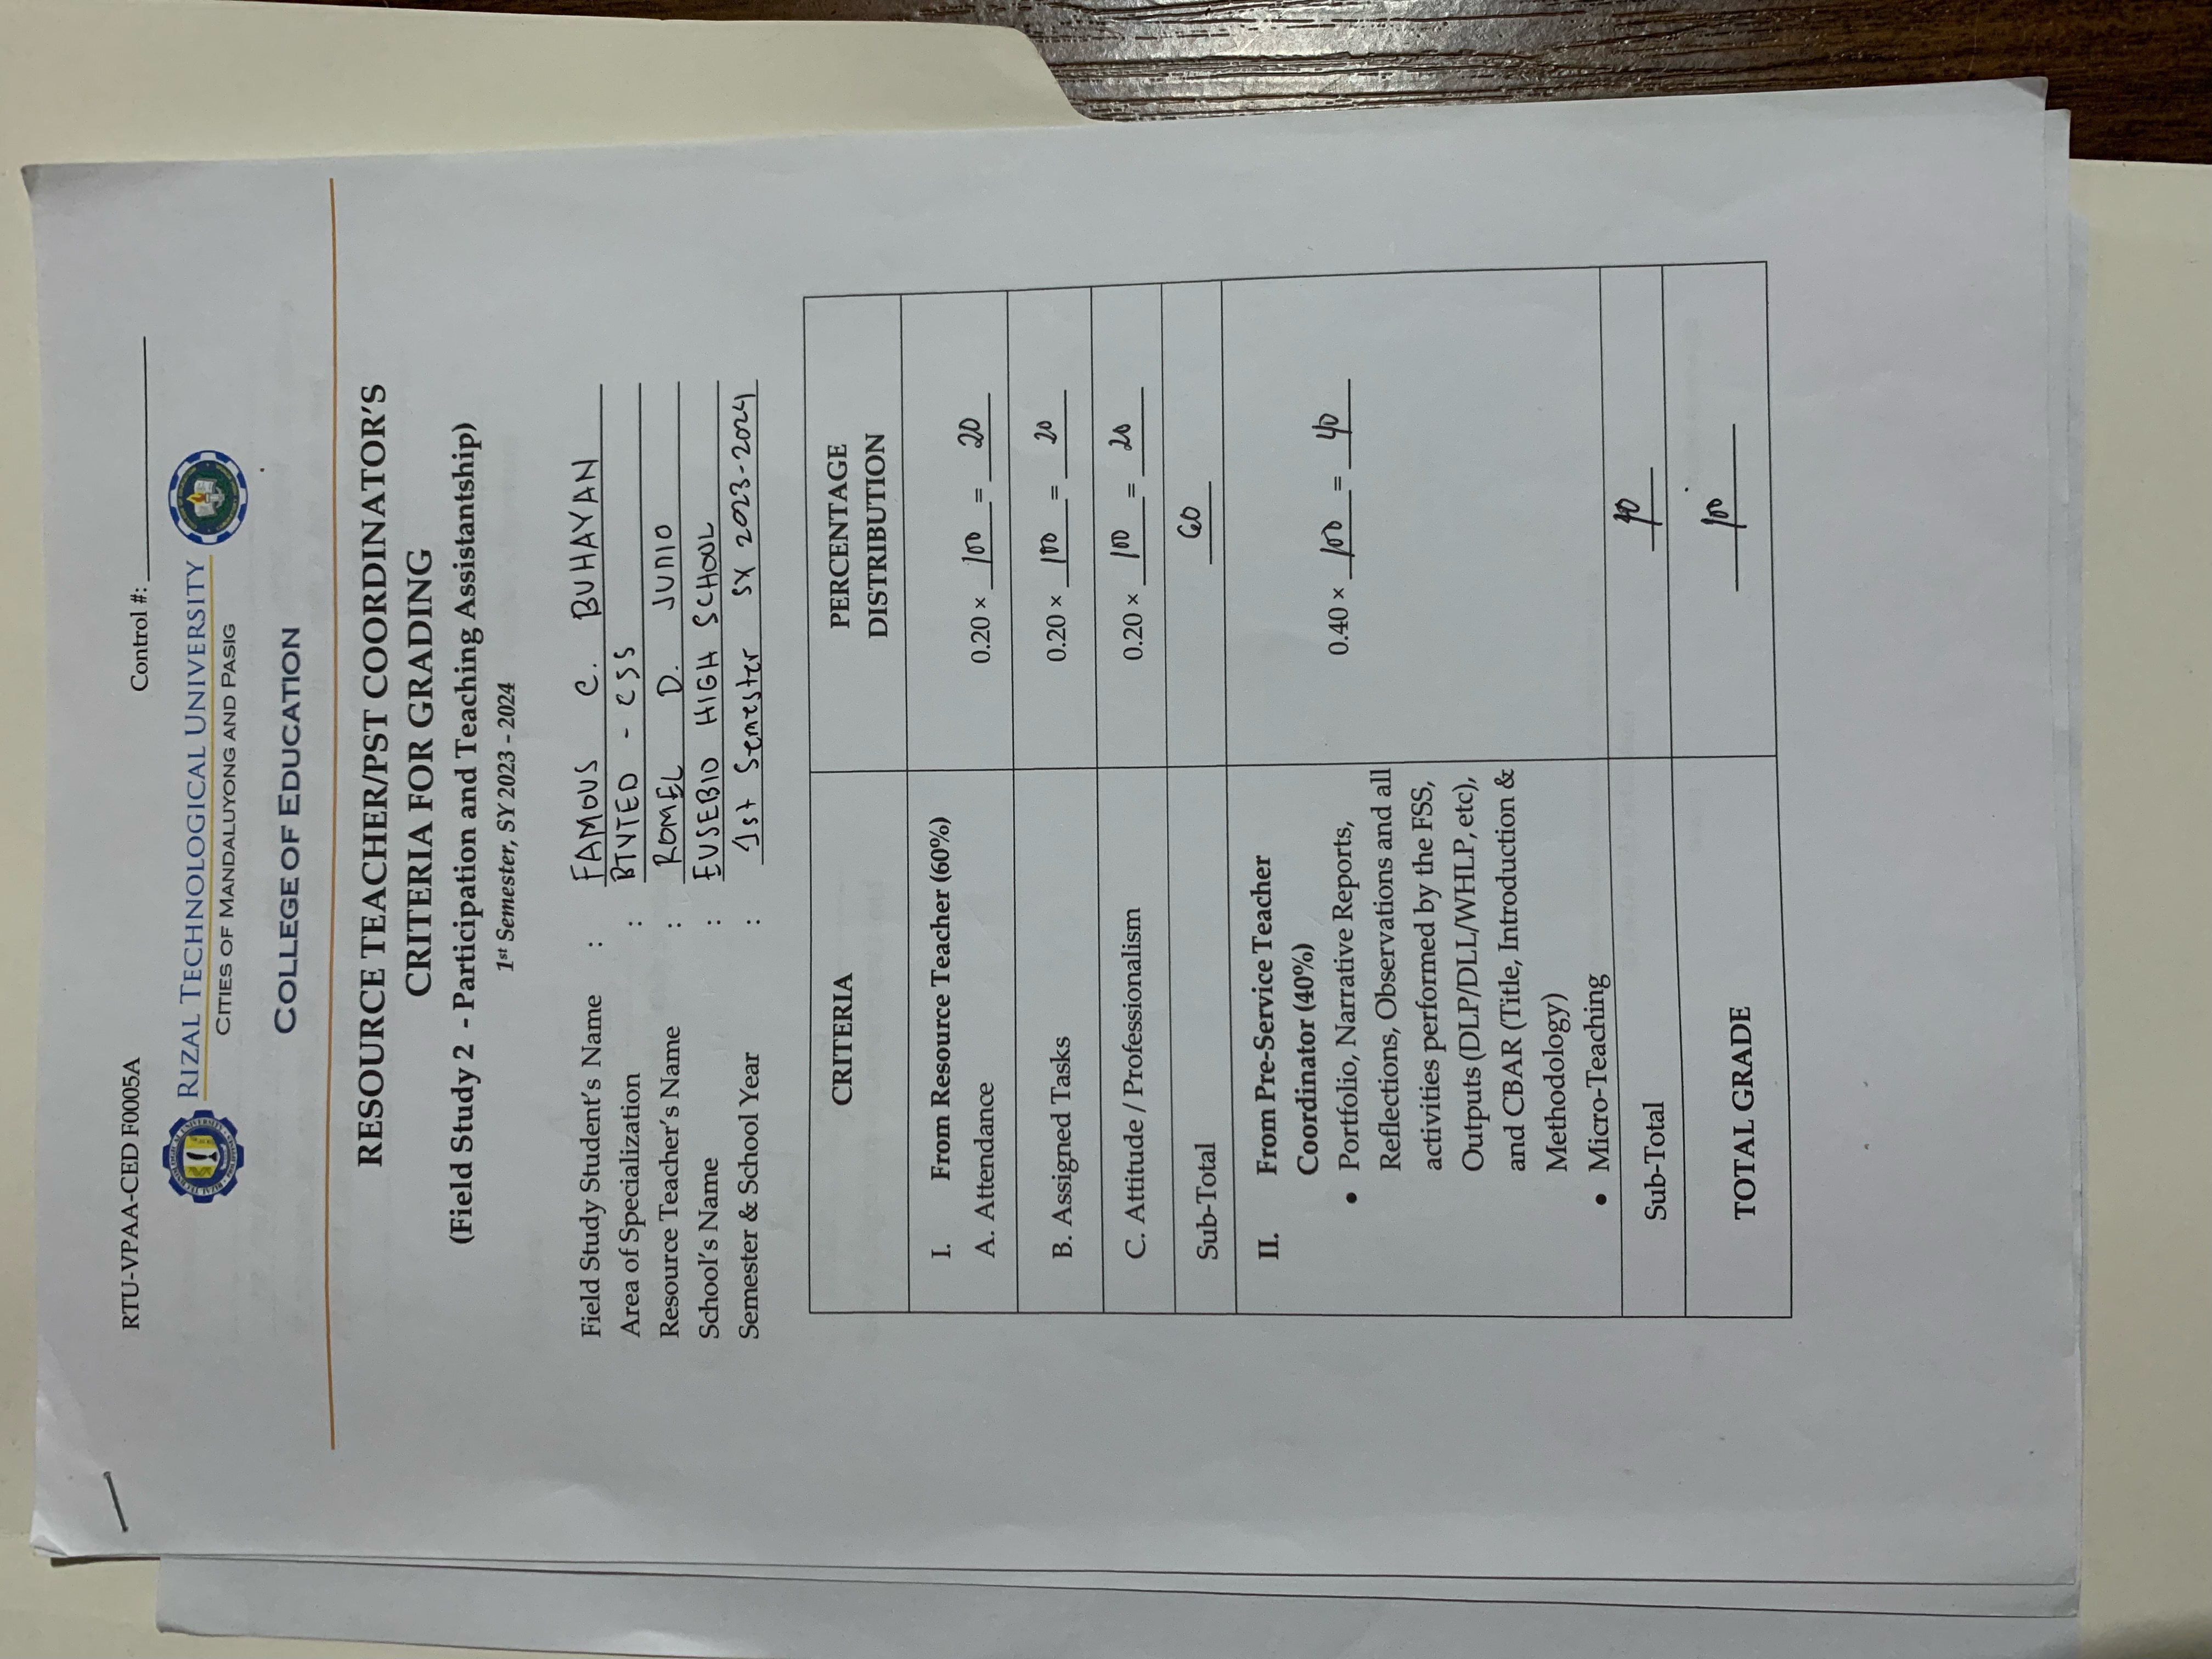 RTU-VPAA-CED F0005A
Control #:
RIZAL TECHNOLOGICAL UNIVERSITY
CITIES OF MANDALUYONG AND PASIG
COLLEGE OF EDUCATION
RESOURCE TEACHER/PST COORDINATOR'S
CRITERIA FOR GRADING
(Field Study 2 - Participation and Teaching Assistantship)
1st Semester, SY 2023 - 2024
Field Study Student's Name : FAMOUS C. BUHAYAN
Area of Specialization : BTVTED - CSS
Resource Teacher's Name : ROMEL D. JUNIO
School's Name : EUSEBIO HIGH SCHOOL
Semester & School Year : 1st Semester SY 2023-2024
CRITERIA
PERCENTAGE
DISTRIBUTION
I. From Resource Teacher (60%)
A. Attendance 0.20 × 100 = 20
B. Assigned Tasks 0.20 × 100 = 20
C. Attitude / Professionalism 0.20 × 100 = 20
Sub-Total 60
II. From Pre-Service Teacher
Coordinator (40%)
0.40 × 100 = 40
• Portfolio, Narrative Reports,
Reflections, Observations and all
activities performed by the FSS,
Outputs (DLP/DLL/WHLP, etc),
and CBAR (Title, Introduction &
Methodology)
• Micro-Teaching
Sub-Total 40
TOTAL GRADE 100